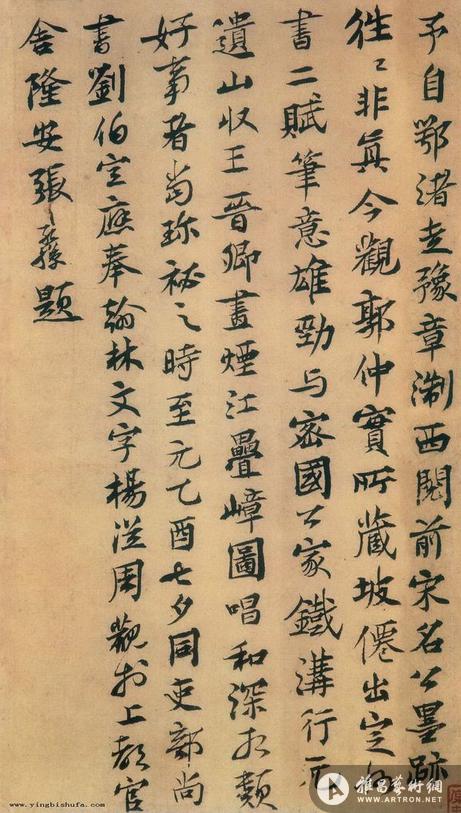 予自鄂渚走豫章淛西閱前宋名公墨跡
徃〻非真今觀郭仲實所藏坡僊出定州
書二賦筆意雄勁与密國公家鐵溝行元
遺山收王晉卿畫煙江疊嶂圖唱和深相類
好事者尚珎祕之時至元乙酉七夕同吏部尚
書劉伯宣應奉翰林文字楊從周觀於上都官
舍隆安張孔孫題
www.yingbishufa.com
雅昌藝術網
WWW.ARTRON.NET